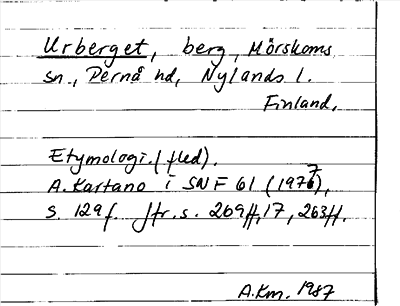 Urberget, berg, Mörskoms
sn., Pernå hd, Nylands l.
Finland.
Etymologi. (fled).
A. Kartano i SNF 61 (1977),
s. 129 f. Jfr. s. 269ff, 17, 263ff.
A.Km. 1987